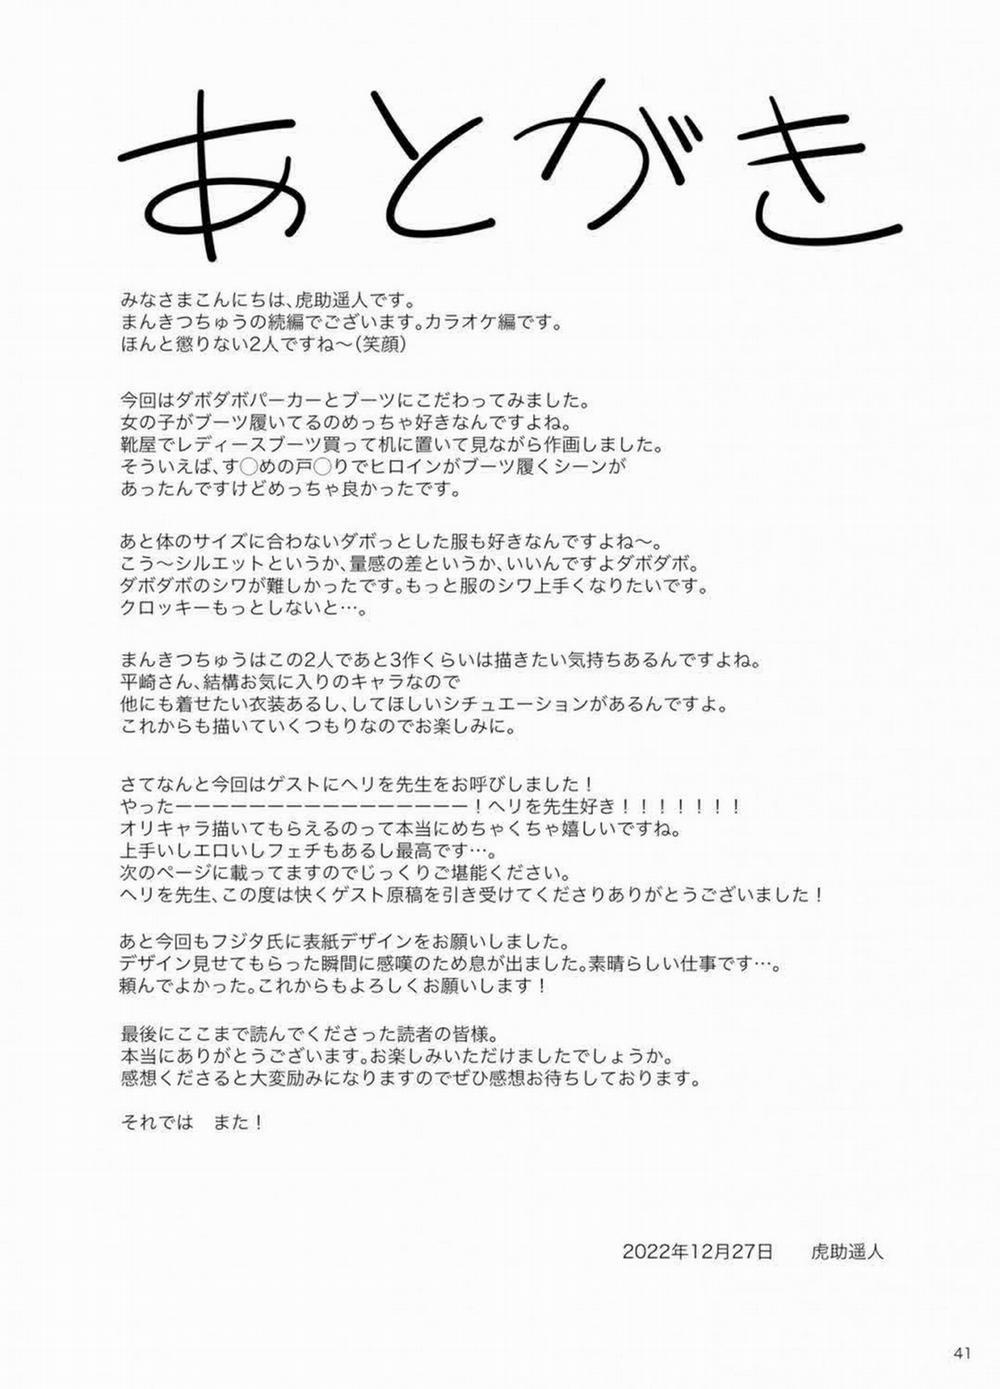 あとがき
みなさまこんにちは、虎助遥人です。
まんきつちゅうの続編でございます。カラオケ編です。
ほんと懲りない2人ですね〜(笑顔)
今回はダボダボパーカーとブーツにこだわってみました。
女の子がブーツ履いてるのめっちゃ好きなんですよね。
靴屋でレディースブーツ買って机に置いて見ながら作画しました。
そういえば、す◯めの戸◯りでヒロインがブーツ履くシーンが
あったんですけどめっちゃ良かったです。
あと体のサイズに合わないダボっとした服も好きなんですよね〜。
こう〜シルエットというか、量感の差というか、いいんですよダボダボ。
ダボダボのシワが難しかったです。もっと服のシワ上手くなりたいです。
クロッキーもっとしないと…。
まんきつちゅうはこの2人であと3作くらいは描きたい気持ちあるんですよね。
平崎さん、結構お気に入りのキャラなので
他にも着せたい衣装あるし、してほしいシチュエーションがあるんですよ。
これからも描いていくつもりなのでお楽しみに。
さてなんと今回はゲストにヘリを先生をお呼びしました！
やったーーーーーーーーーーーーーーーー！ヘリを先生好き！！！！！！！
オリキャラ描いてもらえるのって本当にめちゃくちゃ嬉しいですね。
上手いしエロいしフェチもあるし最高です…。
次のページに載ってますのでじっくりご堪能ください。
ヘリを先生、この度は快くゲスト原稿を引き受けてくださりありがとうございました！
あと今回もフジタ氏に表紙デザインをお願いしました。
デザイン見せてもらった瞬間に感嘆のため息が出ました。素晴らしい仕事です…。
頼んでよかった。これからもよろしくお願いします！
最後にここまで読んでくださった読者の皆様。
本当にありがとうございます。お楽しみいただけましたでしょうか。
感想くださると大変励みになりますのでぜひ感想お待ちしております。
それでは　また！
2022年12月27日　　虎助遥人
41